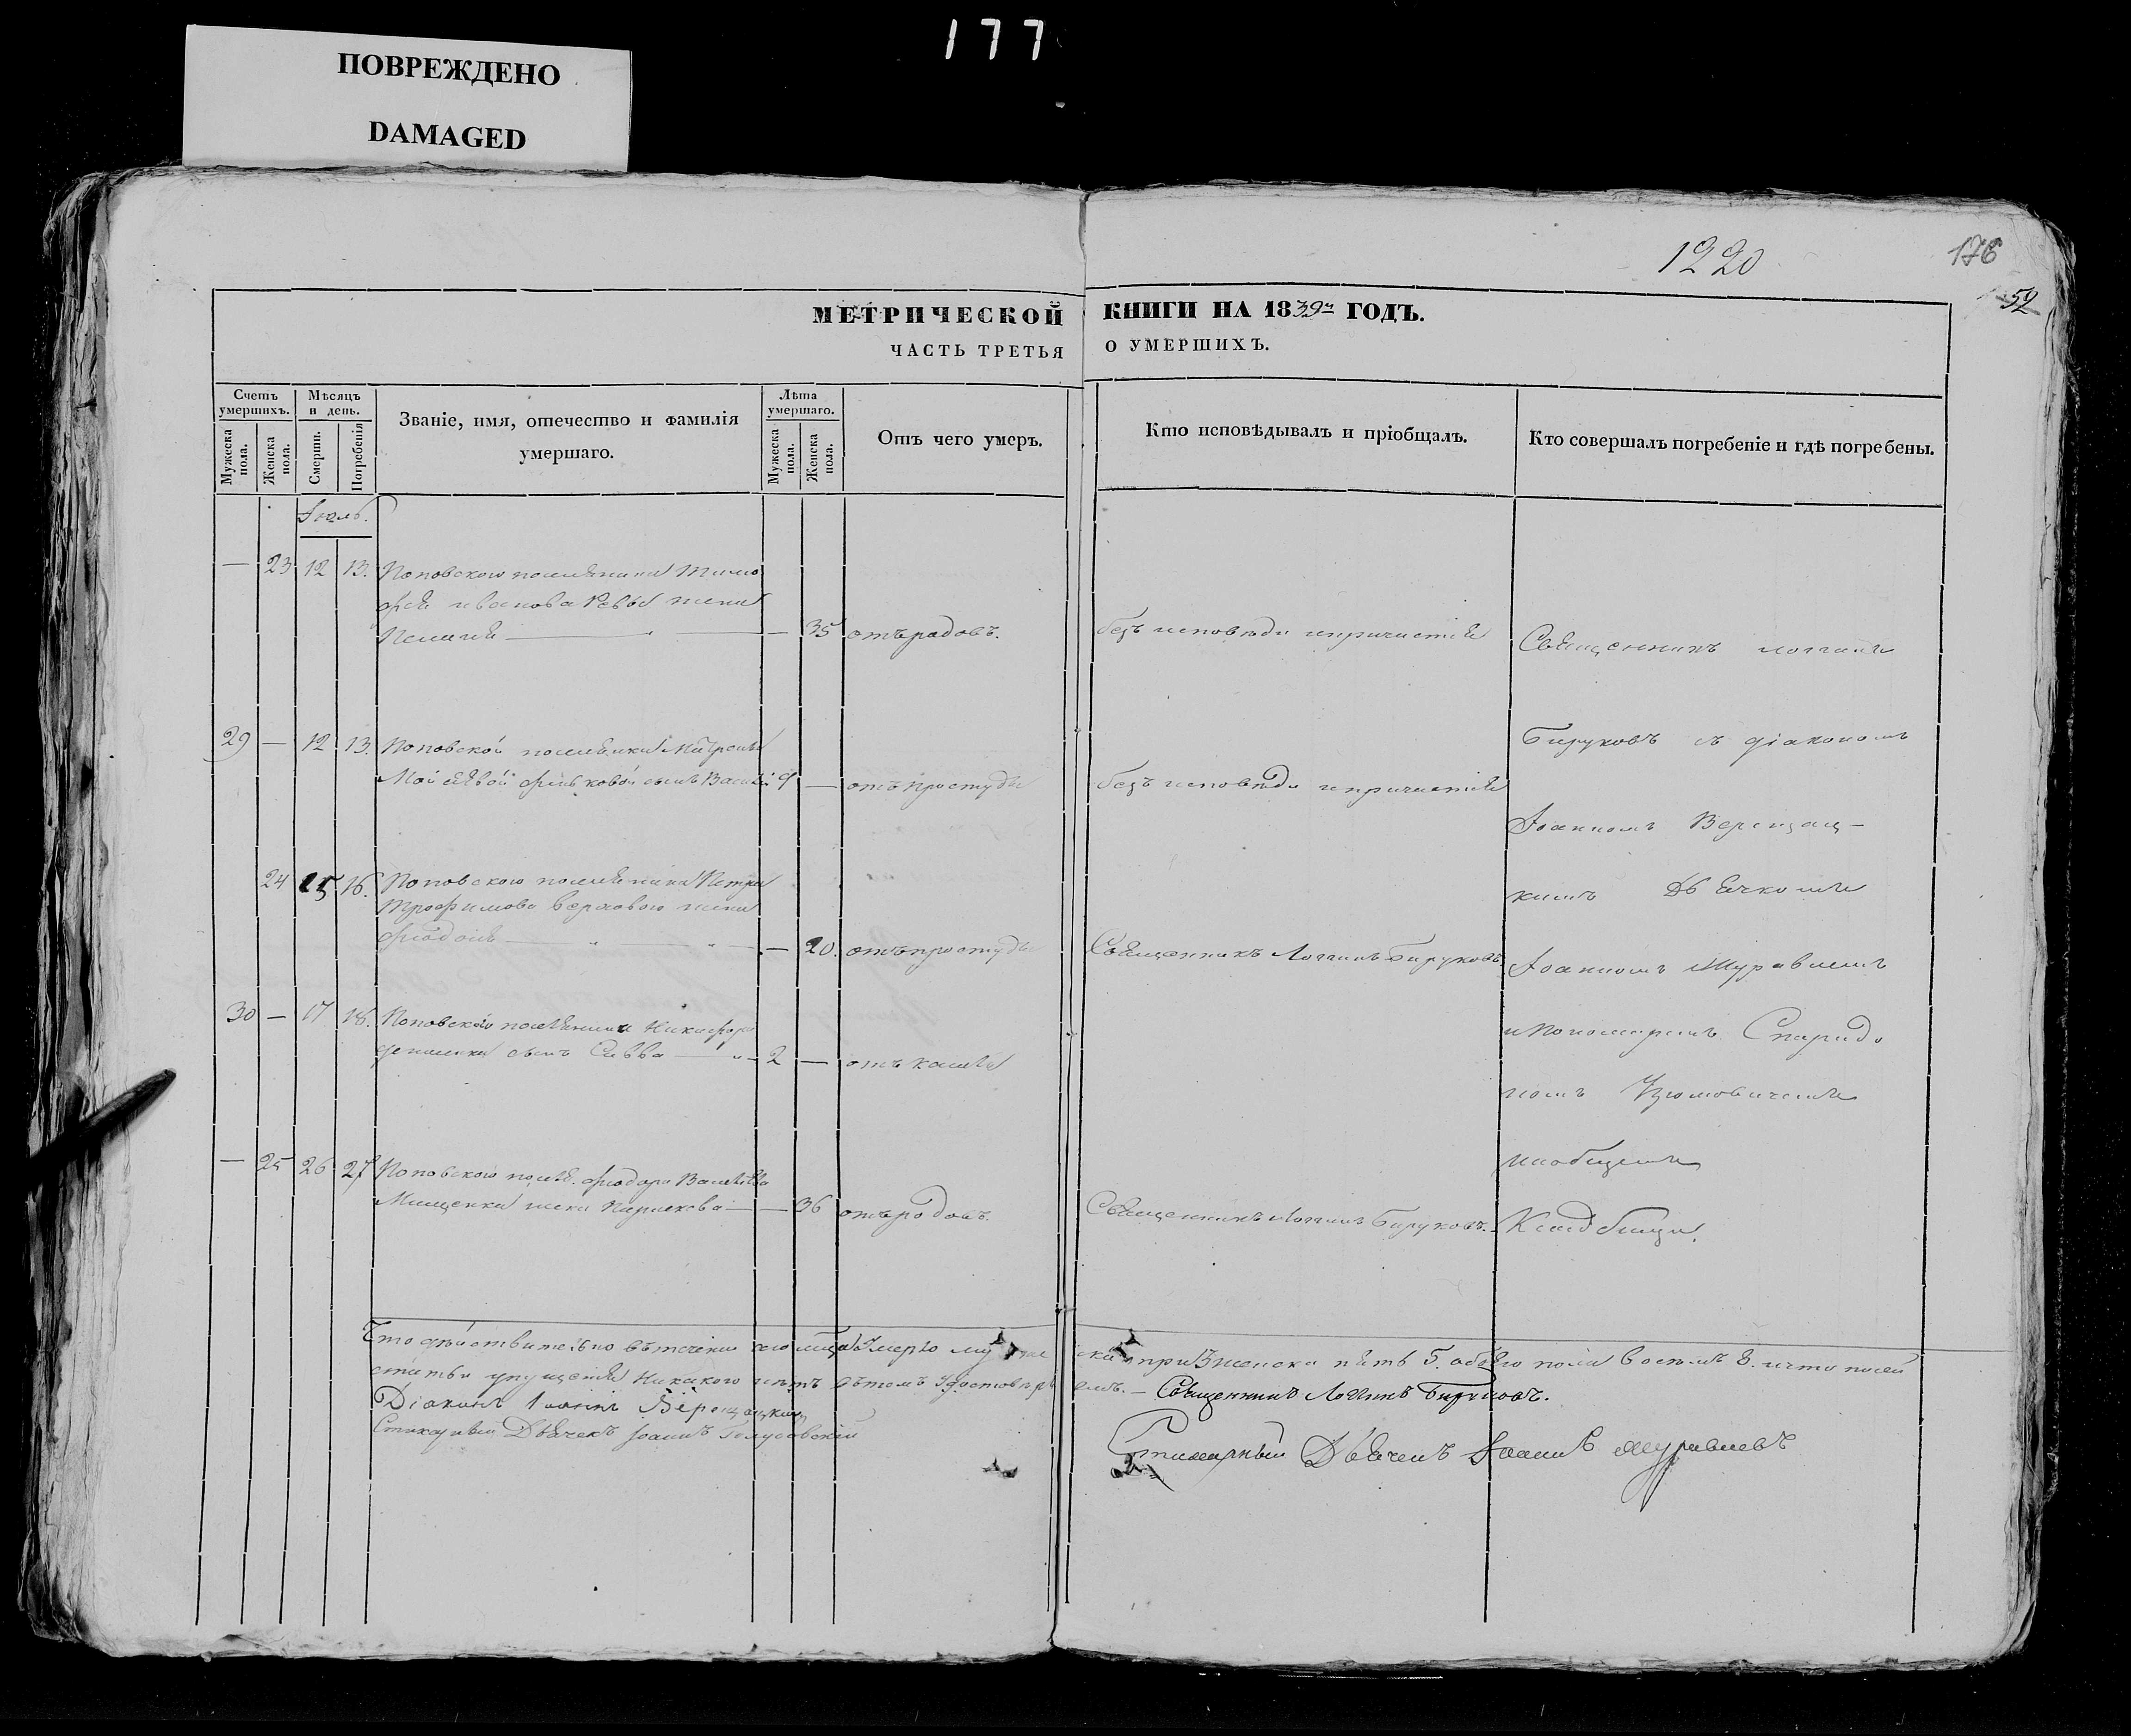 177
ПОВРЕЖДЕНО
DAMAGED
1220
176
52
МЕТРИЧЕСКОЙ КНИГИ НА 1839й ГОДЪ.
ЧАСТЬ ТРЕТЬЯ О УМЕРШИХЪ.
Счетъ умершихъ.
Мужеска пола.
Женска пола.
Мѣсяцъ и день.
Смерти.
Погребенія
Званіе, имя, отечество и фамилія
умершаго.
Лѣта умершаго.
Мужеска пола.
Женска пола.
Отъ чего умеръ.
Кто исповѣдывалъ и пріобщалъ.
Кто совершалъ погребеніе и гдѣ погребены.
Іюль.
— 23 12 13. Поповского поселянина Тимо
фея жена
— 35 отъ родовъ. безъ исповѣди и причастія
Священникъ
29 — 12 13. Поповской поселянки Матрены
сынъ Василій 9 — отъ простуды безъ исповѣди и причастія
Бируковъ съ діакономъ
Іоанномъ Верещац-
24 15 16. Поповского поселянина Петра
Трофимова жена
— 20. отъ простуды Священникъ Логгинъ Бируковъ.
кимъ Дьячкомъ
Іоанномъ Журавлемъ
30 — 17 18. Поповского поселянина Никифора
сынъ Савва — 2 — отъ кашля
и пономаремъ Спиридо
номъ
— 25 26 27 Поповского посел. Федора
Мищенка жена — 36 отъ родовъ. Священникъ Логгинъ Бируковъ.
на общемъ
Кладбищи.
Что дѣйствительно въ теченіи сего мѣсяца умерло три женска пять 5. обоего пола восемъ 8. и что по сей
статьи упущенія никакого нетъ въ томъ удостовѣряемъ. — Священникъ Логгинъ Бируковъ.
Діаконъ Іоаннъ Верещацкій
Стихарный Дьячекъ Іоаннъ
Стихарный Дьячекъ Іоаннъ Журавлевъ